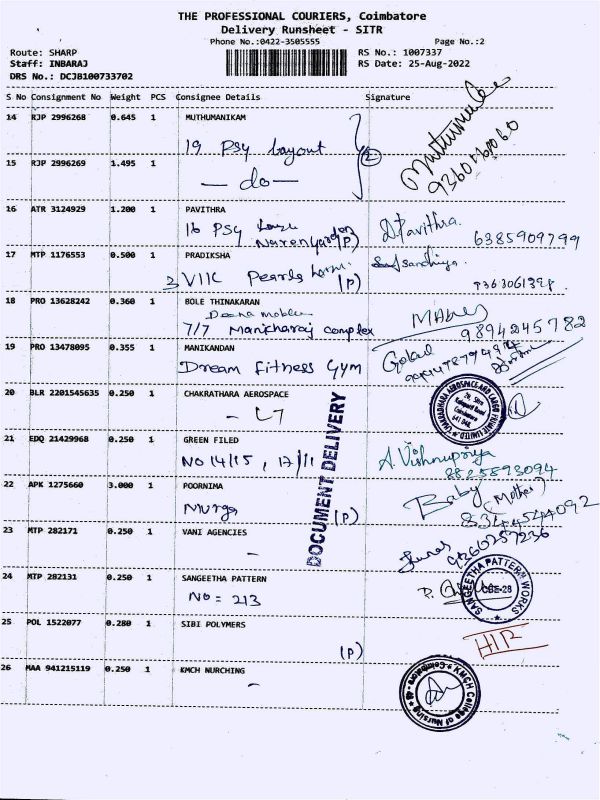 THE PROFESSIONAL COURIERS, Coimbatore
Delivery Runsheet - SITR
Phone No.:0422-3505555 Page No.:2
Route: SHARP RS No.: 1007337
Staff: INBARAJ RS Date: 25-Aug-2022
DRS No.: DCJB100733702
S No Consignment No Weight PCS Consignee Details Signature
14 RJP 2996268 0.645 1 MUTHUMANIKAM
19 PSG Layout
2
15 RJP 2996269 1.495 1
— do —
16 ATR 3124929 1.200 1 PAVITHRA
16 PSG
(P)
D.Pavithra.
6385909799
17 MTP 1176553 0.500 1 PRADIKSHA
3 VIIC Pearls
(P)
Sandhiya.
18 PRO 13628242 0.360 1 BOLE THINAKARAN
7/7 Manicharaj complex
9894245782
19 PRO 13478095 0.355 1 MANIKANDAN
Dream Fitness Gym
Gokul
20 BLR 2201545635 0.250 1 CHAKRATHARA AEROSPACE
DOCUMENT DELIVERY
21 EDQ 21429968 0.250 1 GREEN FILED
No 14/15, 17/11
A. Vishnupriya
8825893094
22 APK 1275660 3.000 1 POORNIMA
(P)
Baby (Mother)
8344544092
23 MTP 282171 0.250 1 VANI AGENCIES
–
9360257236
24 MTP 282131 0.250 1 SANGEETHA PATTERN
No = 213
SANGEETHA PATTERN WORKS
CBE-28
25 POL 1522077 0.280 1 SIBI POLYMERS
(P)
26 MAA 941215119 0.250 1 KMCH NURCHING
–
KMCH College of Nursing Coimbatore